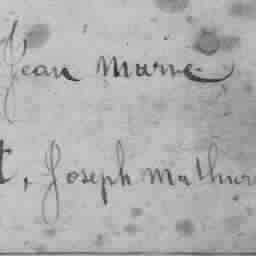 Jean Marie
t, Joseph Mathuri